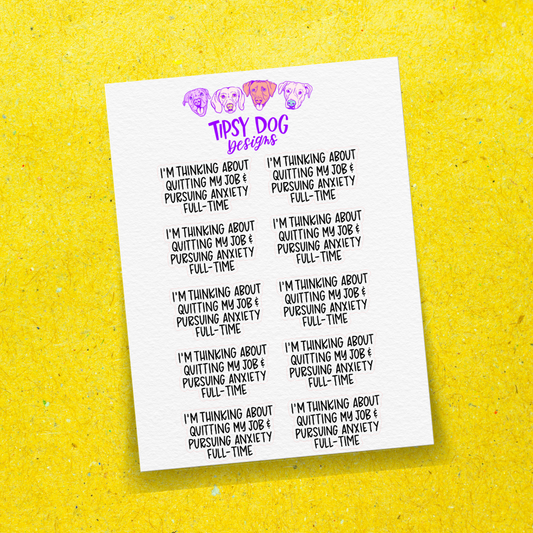 TIPSY DOG
Designs
I'M THINKING ABOUT
QUITTING MY JOB &
PURSUING ANXIETY
FULL-TIME
I'M THINKING ABOUT
QUITTING MY JOB &
PURSUING ANXIETY
FULL-TIME
I'M THINKING ABOUT
QUITTING MY JOB &
PURSUING ANXIETY
FULL-TIME
I'M THINKING ABOUT
QUITTING MY JOB &
PURSUING ANXIETY
FULL-TIME
I'M THINKING ABOUT
QUITTING MY JOB &
PURSUING ANXIETY
FULL-TIME
I'M THINKING ABOUT
QUITTING MY JOB &
PURSUING ANXIETY
FULL-TIME
I'M THINKING ABOUT
QUITTING MY JOB &
PURSUING ANXIETY
FULL-TIME
I'M THINKING ABOUT
QUITTING MY JOB &
PURSUING ANXIETY
FULL-TIME
I'M THINKING ABOUT
QUITTING MY JOB &
PURSUING ANXIETY
FULL-TIME
I'M THINKING ABOUT
QUITTING MY JOB &
PURSUING ANXIETY
FULL-TIME